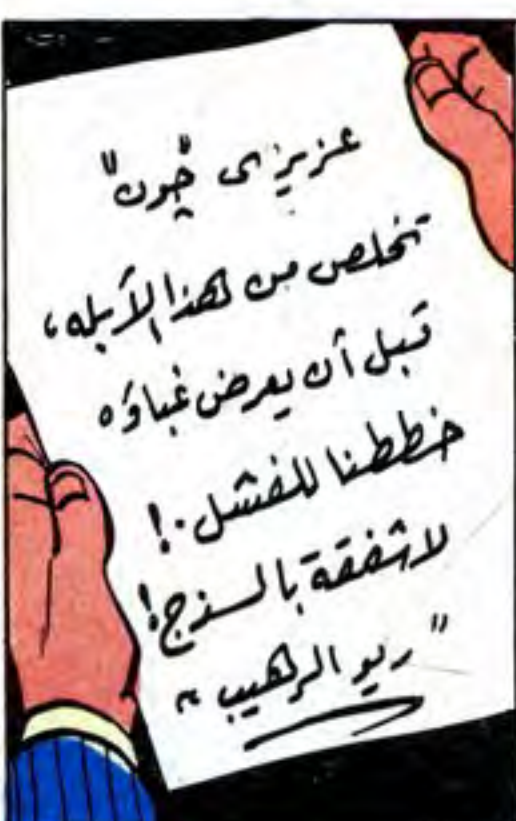 عزيزى "چون"
تخلص من هذا الأبله،
قبل أن يعرض غباؤه
خططنا للفشل.!
لا شفقة بالسذج!
"ريو الرهيب"